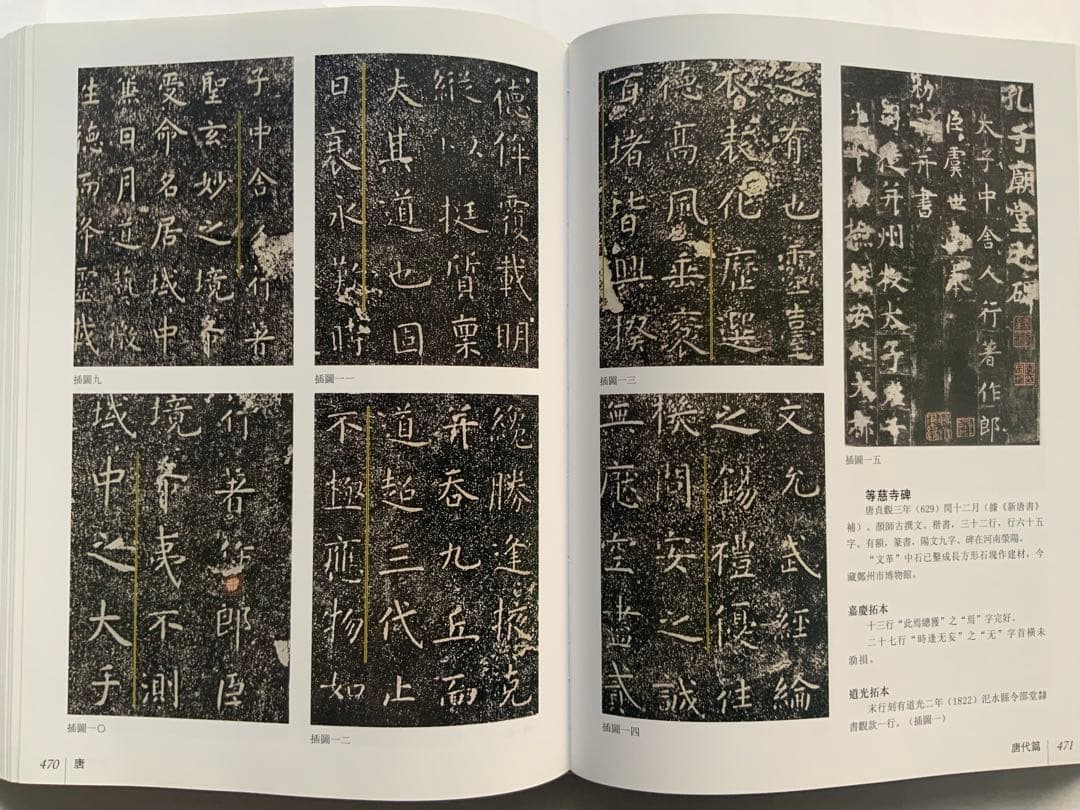 子中舍人行著
聖玄妙之境希
受命名居域中
兼日月道藝微
生德而降靈載
插圖九
行著作郎臣
境希夷不測
域中之大手
插圖一〇
德侔覆載明
縱以挺質稟
大其道也固
日衰永歎時
插圖一一
纔勝逢掖克
并吞九丘而
道超三代止
不極應物如
插圖一二
470 唐
之有也靈臺
化歷選
德高風垂裒
百堵皆興揆
插圖一三
文允武經綸
之錫禮優往
模問安之誠
無空盡貳
插圖一四
孔子廟堂之碑
太子中舍人行著作郎
臣虞世南奉
勑并書
司徒并州牧太子左千
檢校安北大都
插圖一五
等慈寺碑
唐貞觀三年（629）閏十二月（據《新唐書》
補）。顏師古撰文。楷書，三十二行，行六十五
字。有額，篆書，陽文九字。碑在河南滎陽。
“文革”中石已鑿成長方形石塊作建材，今
藏鄭州市博物館。
嘉慶拓本
十三行“此焉總獲”之“焉”字完好。
二十七行“時逢无妄”之“无”字首橫未
泐損。
道光拓本
末行刻有道光二年（1822）汜水縣令邵堂隸
書觀款一行。（插圖一）
唐代篇 471